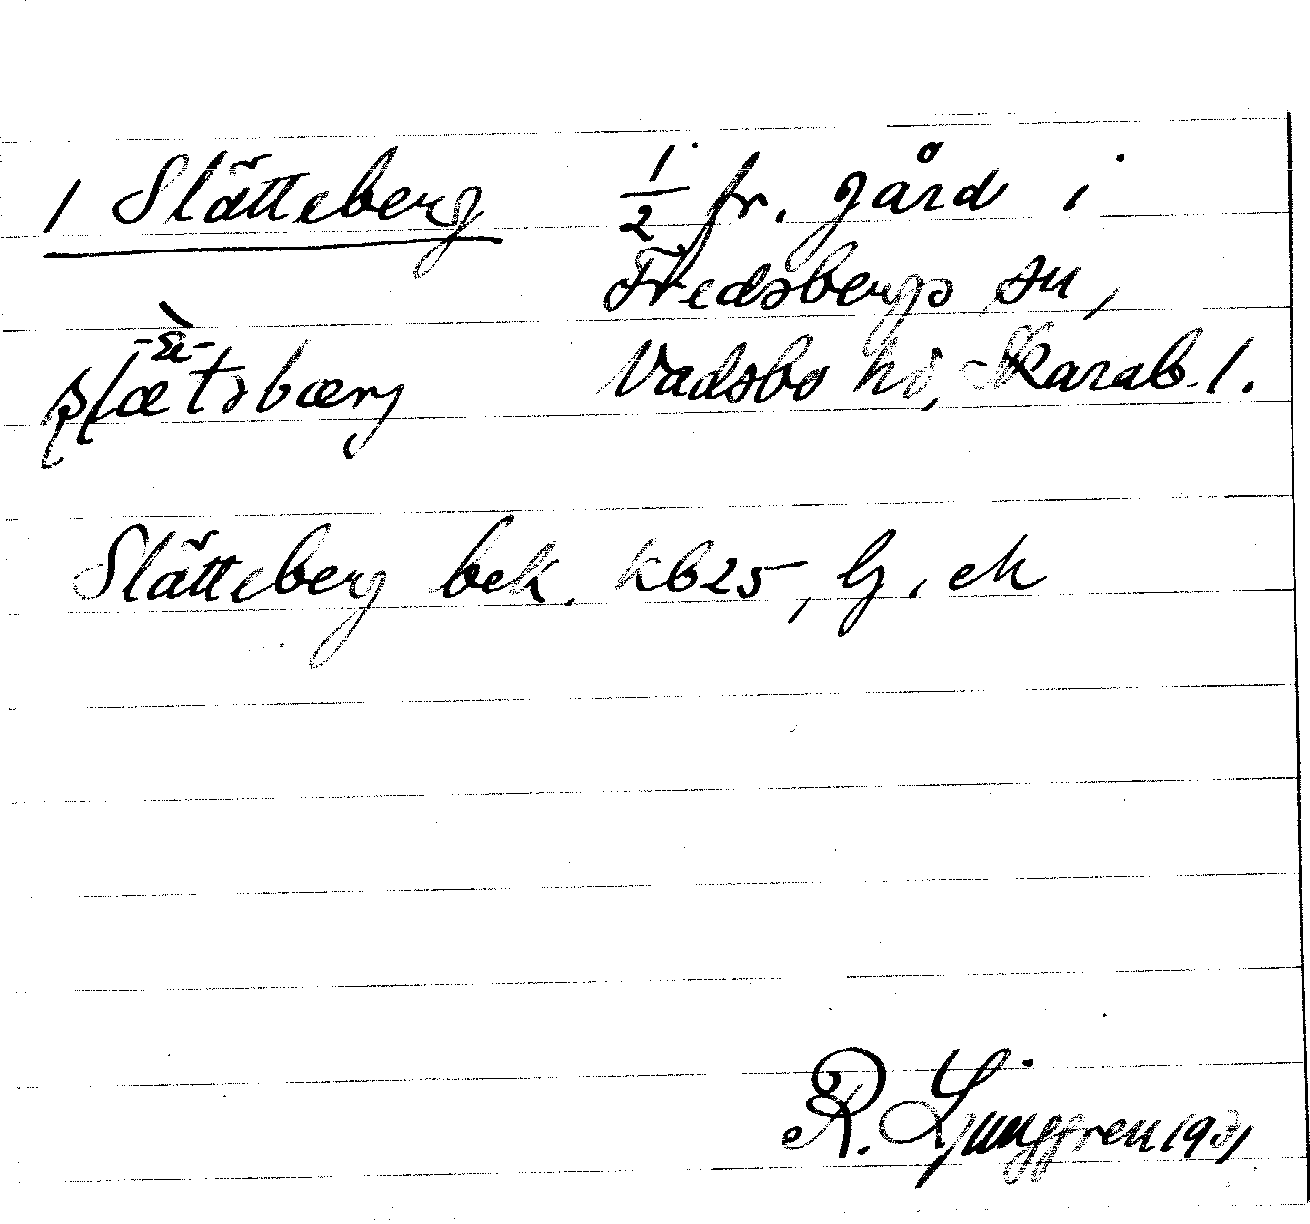 1 Slätteberg 1/2 fr. gård i
Fredsbergs sn,
Vadsbo hd, Skarab. l.
Slätteberg bek. kb25, lj, ek
R. Ljunggren 1931